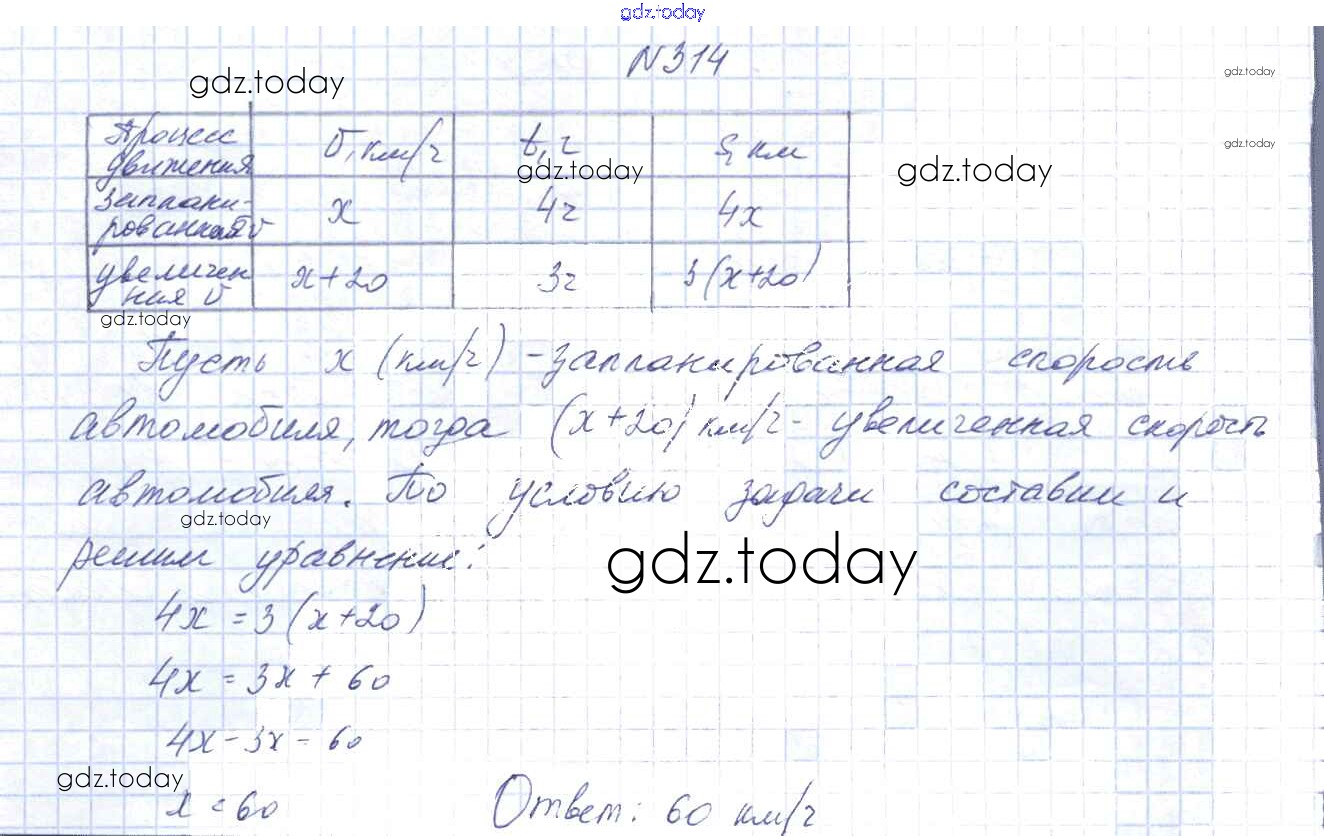 gdz.today
N314
gdz.today
gdz.today
Процесс движения v, км/ч t, ч S, км
gdz.today
gdz.today
gdz.today
заплани-
рованная v x 4ч 4x
увеличен
ная v x+20 3ч 3(x+20)
gdz.today
Пусть x (км/ч) - запланированная скорость
автомобиля, тогда (x+20) км/ч - увеличенная скорость
автомобиля. По условию задачи составим и
gdz.today
решим уравнение:
gdz.today
4x = 3(x+20)
4x = 3x + 60
4x - 3x = 60
gdz.today
x = 60 Ответ: 60 км/ч